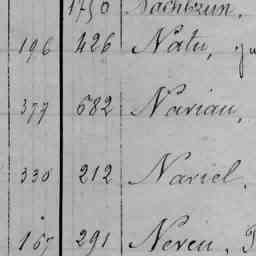 1750 Nachtzun,
196 426 Natu,
377 682 Navian,
330 212 Nariel,
167 291 Nereu,